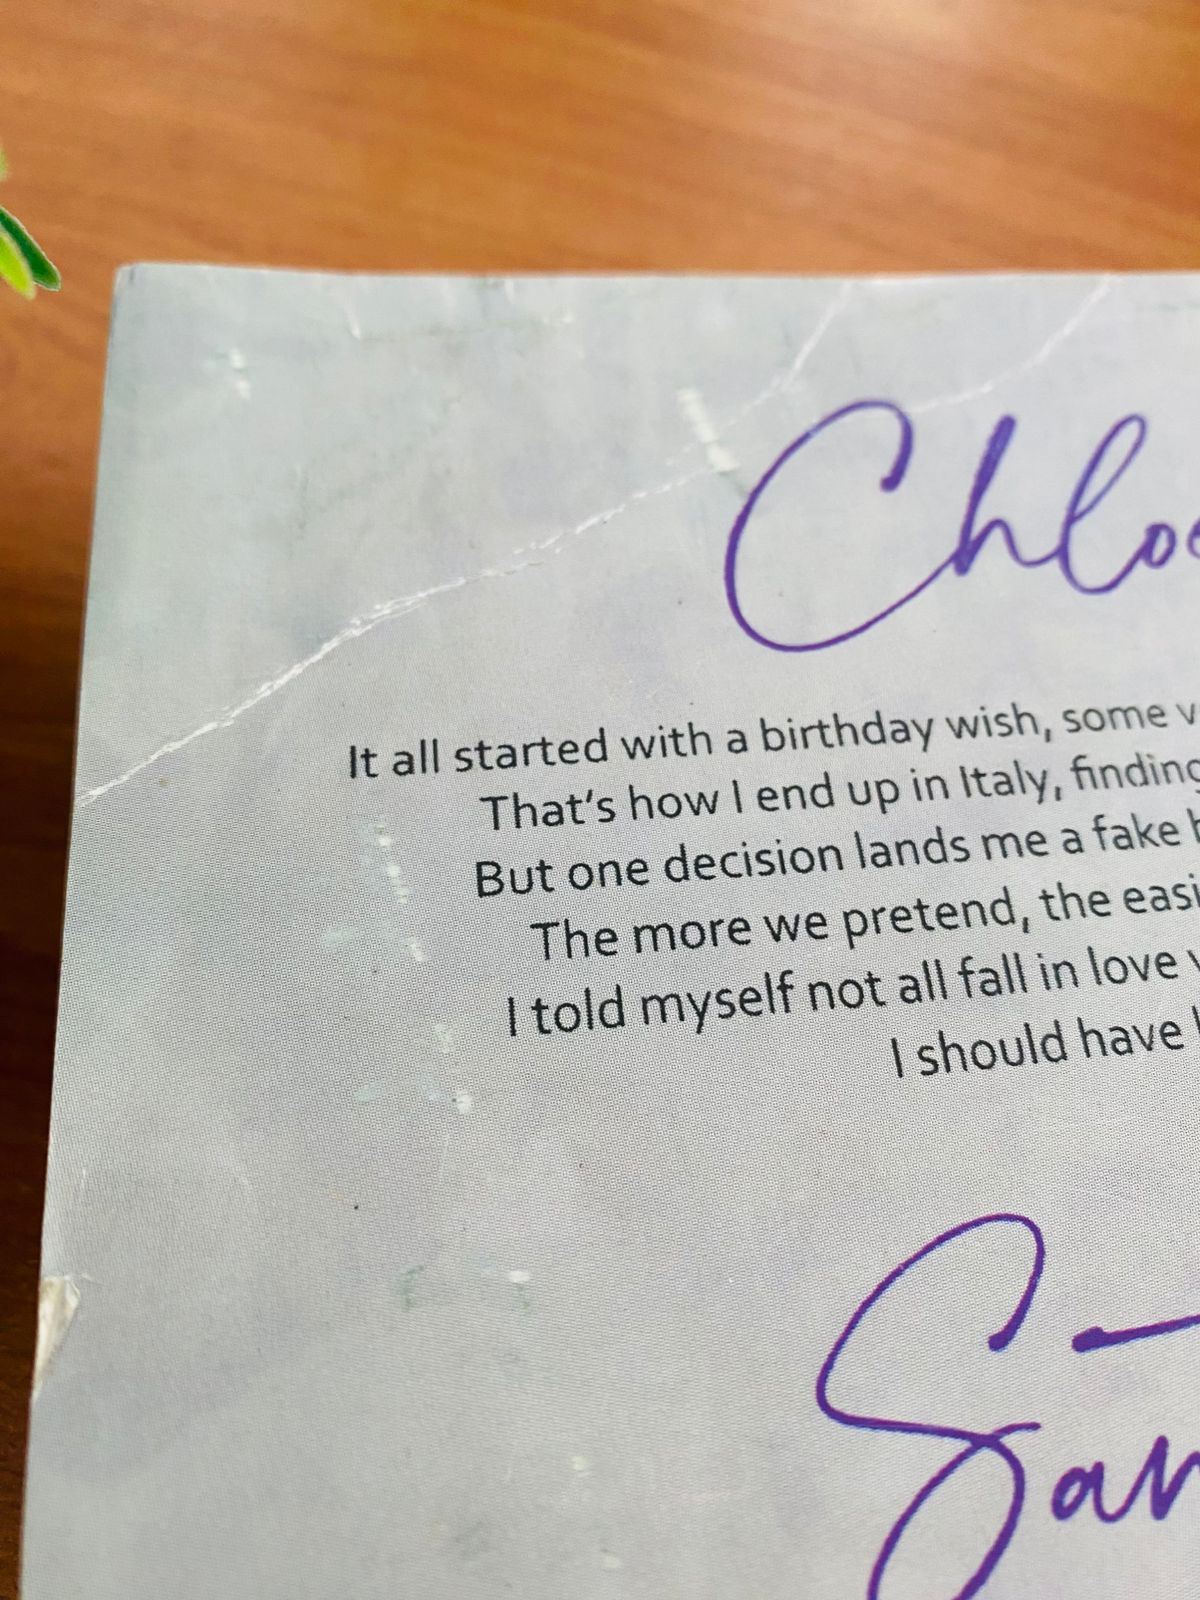 Chloe
It all started with a birthday wish, some
That's how I end up in Italy, finding
But one decision lands me a fake
The more we pretend, the easi
I told myself not all fall in love
I should have
San